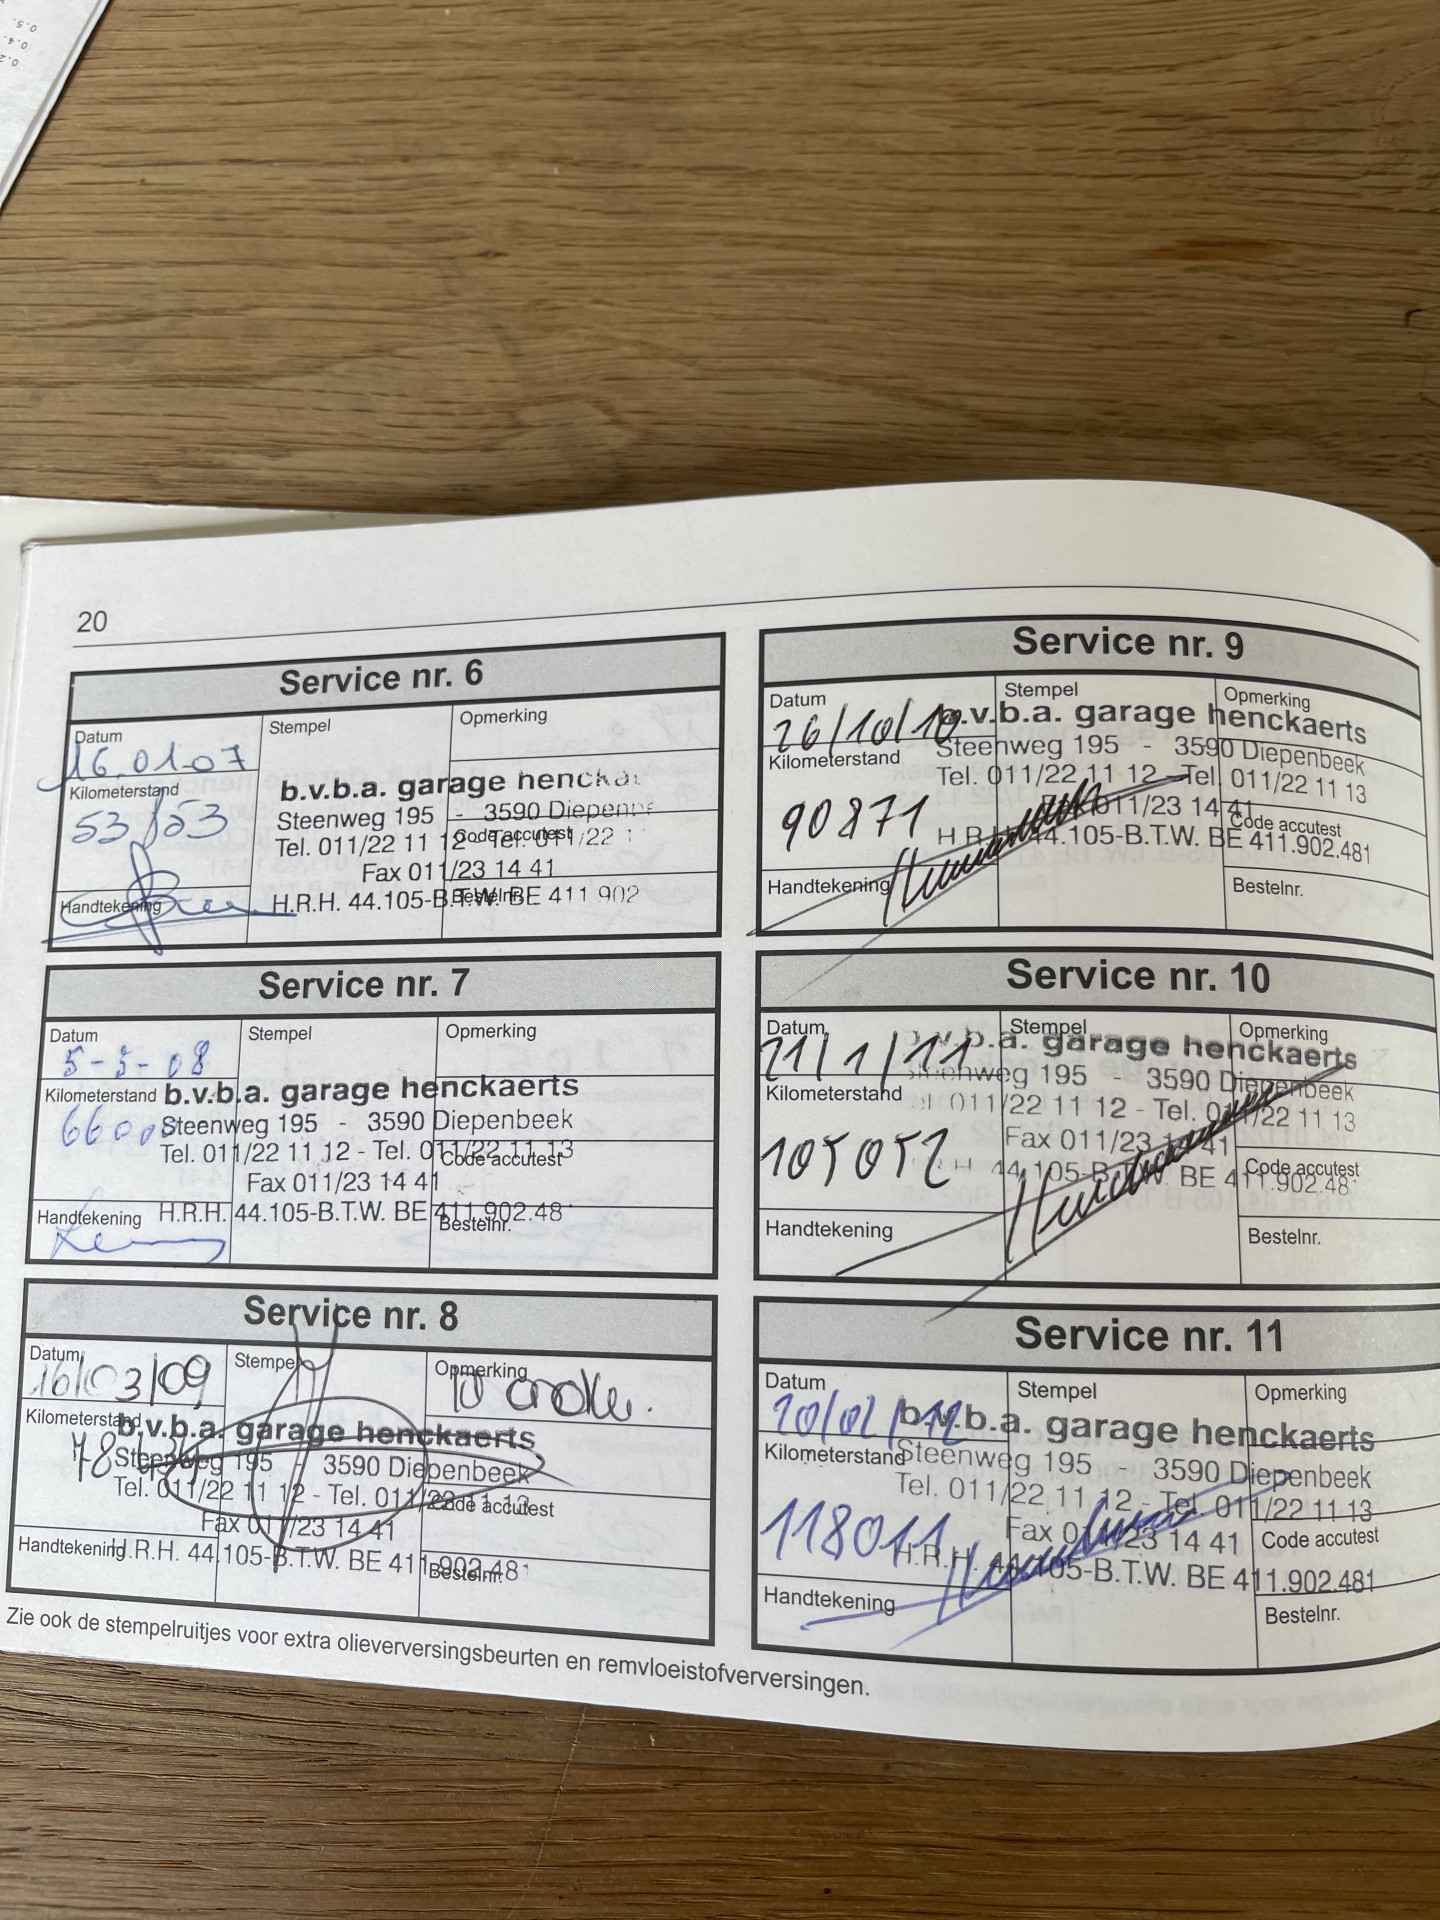 20
Service nr. 6
Datum
16.01.07
Stempel
Opmerking
Kilometerstand
53
b.v.b.a. garage
Steenweg 195 - 3590
Tel. 011/22 11 12 - Tel. 011/22
Code accutest
Fax 011/23 14 41
Handtekening
H.R.H. 44.105-B.T.W. BE 411 902
Bestelnr.
Service nr. 7
Datum
5-5-08
Stempel
Opmerking
Kilometerstand
b.v.b.a. garage henckaerts
Steenweg 195 - 3590 Diepenbeek
Tel. 011/22 11 12 - Tel. 011/22 11 13
Code accutest
Fax 011/23 14 41
Handtekening
H.R.H. 44.105-B.T.W. BE 411.902.48
Bestelnr.
Service nr. 8
Datum
16/03/09
Stempel
Opmerking
Kilometerstand
b.v.b.a. garage henckaerts
Steenweg 195 - 3590 Diepenbeek
Tel. 011/22 11 12 - Tel. 011/22 11 13
Code accutest
Fax 011/23 14 41
Handtekening
H.R.H. 44.105-B.T.W. BE 411.902.481
Bestelnr.
Zie ook de stempelruitjes voor extra olieverversingsbeurten en remvloeistofverversingen.
Service nr. 9
Datum
26/10/10
Stempel
Opmerking
b.v.b.a. garage henckaerts
Kilometerstand
Steenweg 195 - 3590 Diepenbeek
Tel. 011/22 11 12 - Tel. 011/22 11 13
90871
Fax 011/23 14 41
Code accutest
H.R.H. 44.105-B.T.W. BE 411.902.481
Handtekening
Bestelnr.
Service nr. 10
Datum
21/1/11
Stempel
Opmerking
b.v.b.a. garage henckaerts
Kilometerstand
Steenweg 195 - 3590 Diepenbeek
011/22 11 12 - Tel. 011/22 11 13
105052
Fax 011/23 14 41
Code accutest
44.105-B.T.W. BE 411.902.48
Handtekening
Bestelnr.
Service nr. 11
Datum
Stempel
Opmerking
b.v.b.a. garage henckaerts
Kilometerstand
Steenweg 195 - 3590 Diepenbeek
Tel. 011/22 11 12 - Tel. 011/22 11 13
118011
Fax 011/23 14 41
Code accutest
H.R.H. 44.105-B.T.W. BE 411.902.481
Handtekening
Bestelnr.